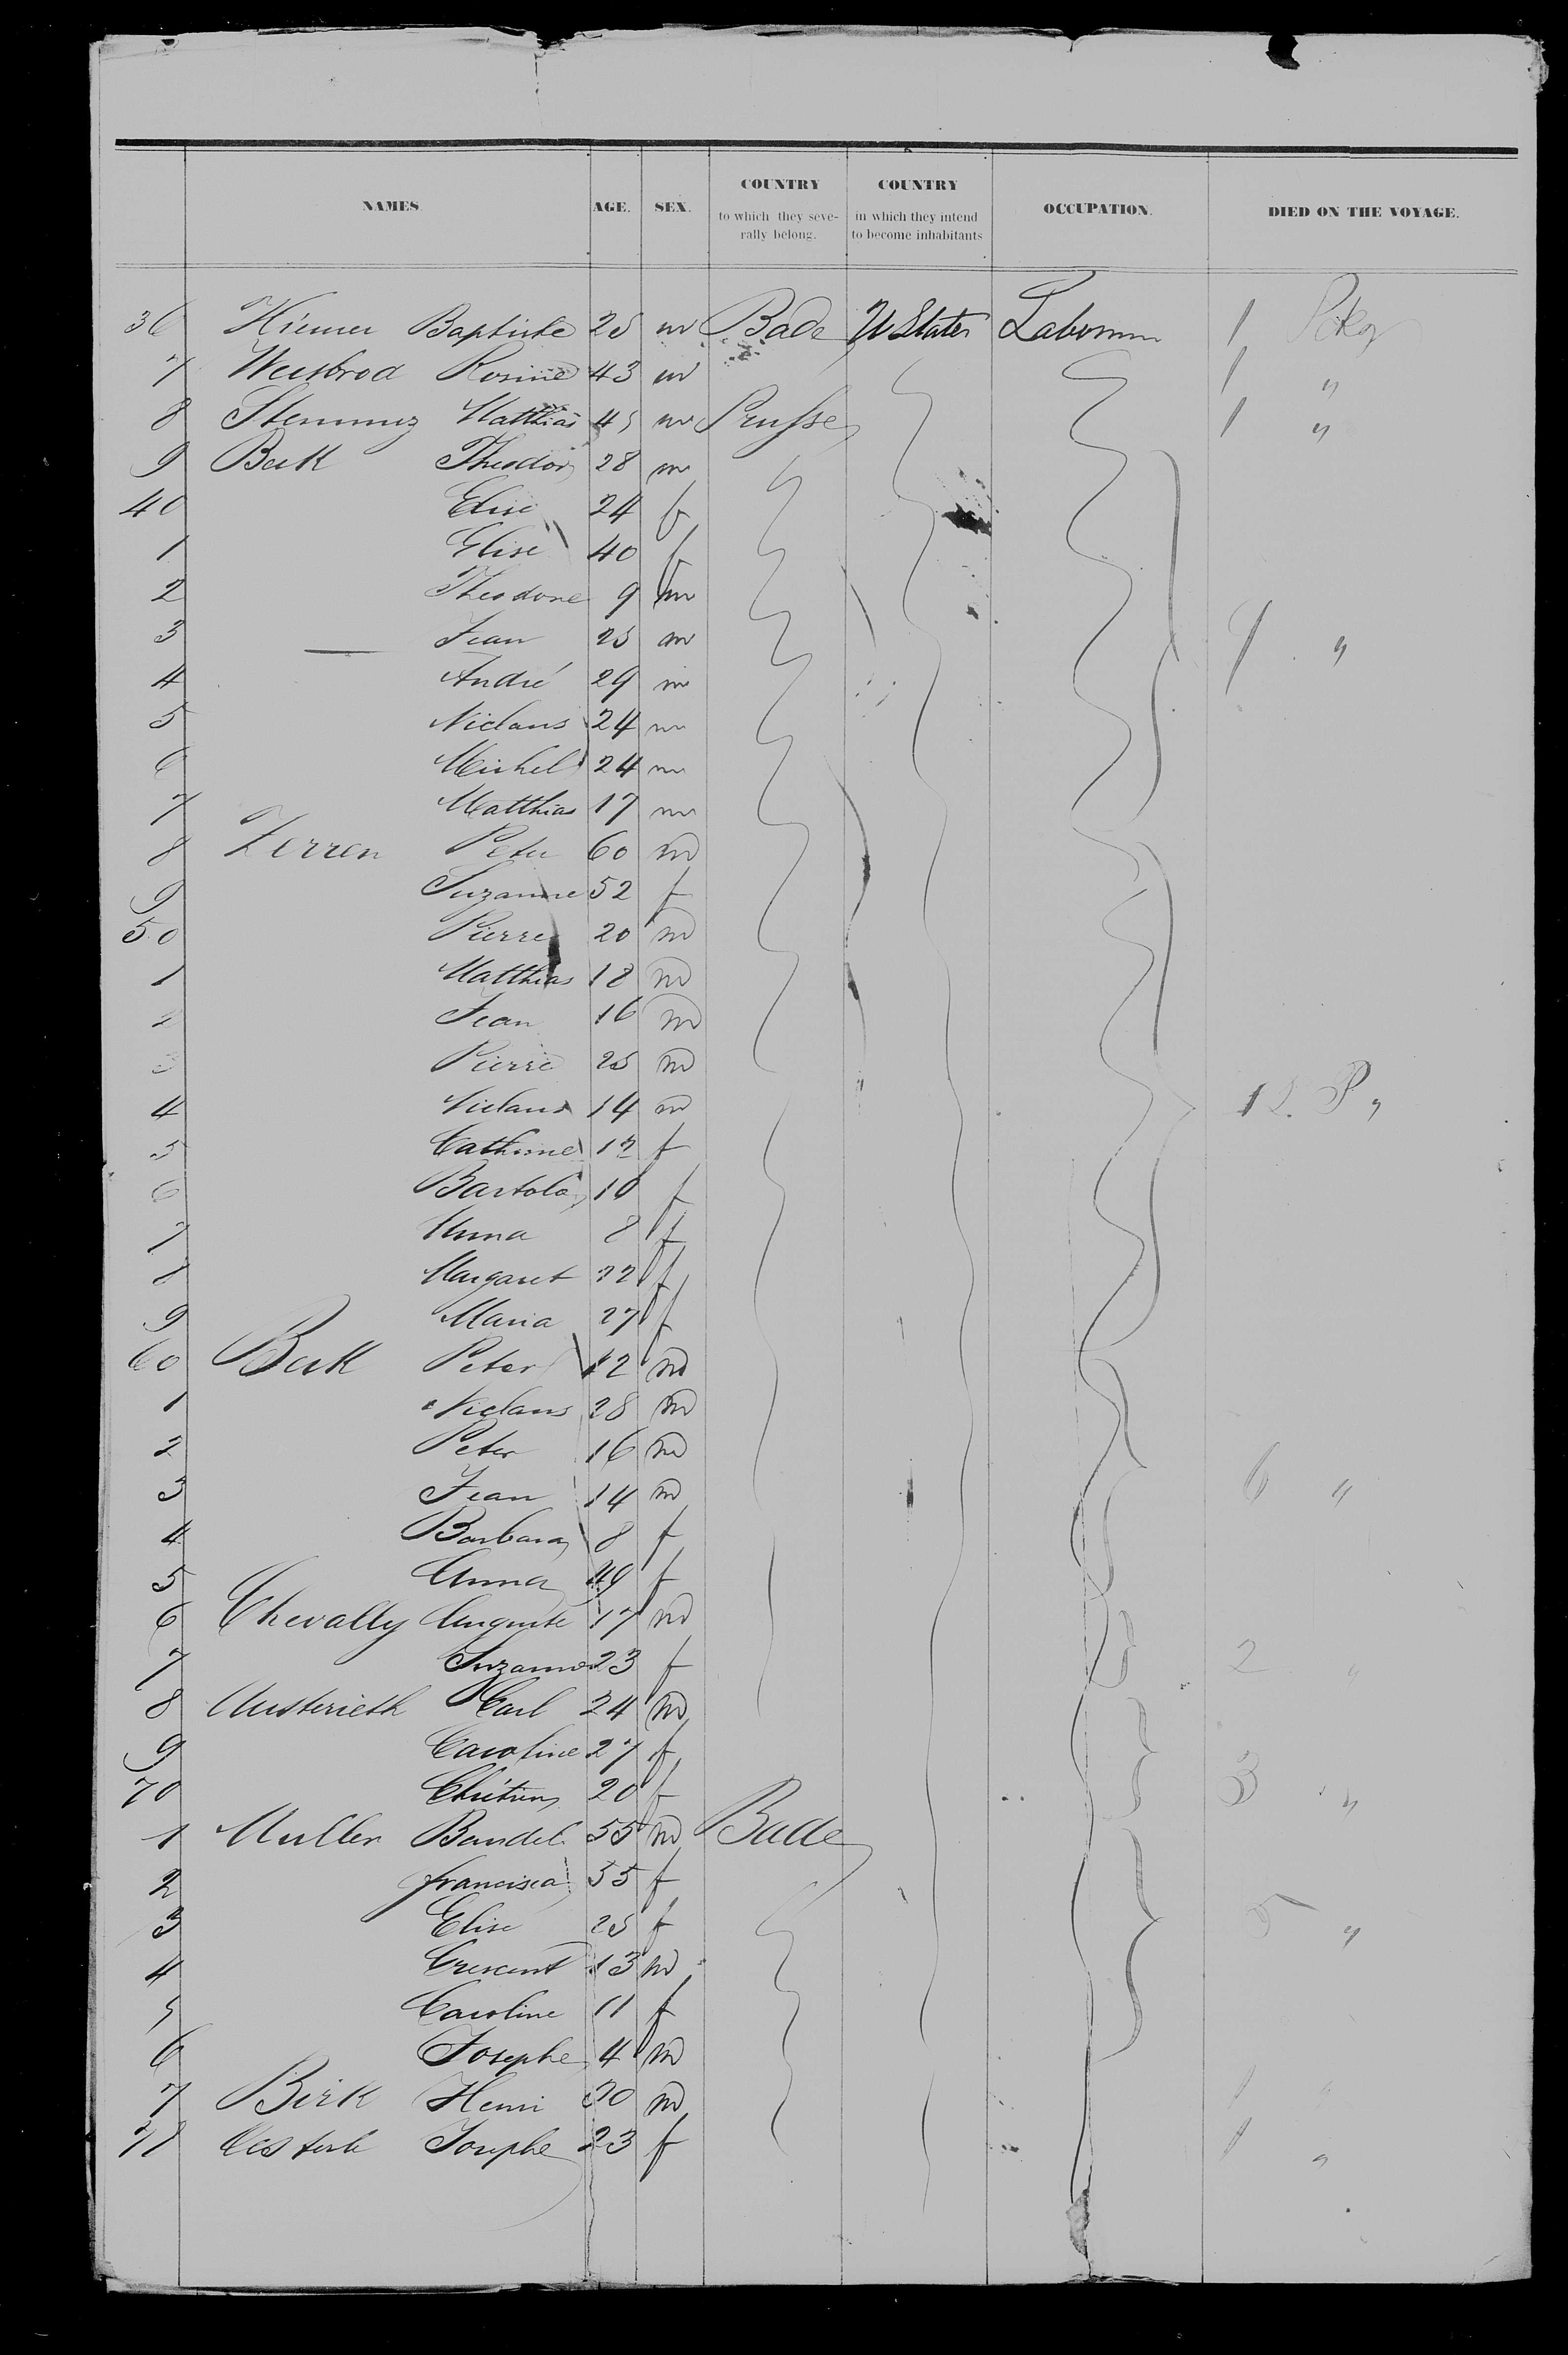 NAMES. AGE. SEX. COUNTRY to which they seve- rally belong. COUNTRY in which they intend to become inhabitants OCCUPATION. DIED ON THE VOYAGE.
36 Hiemer Baptiste 25 m Bade U States Labourer 1 Pckg
7 Weisbrod Rosine 43 m 1 "
8 Stemmuz Matthias 45 m Prusse 1 "
9 Berk Theodor 28 m
40 Elise 24 f
1 Elise 40 f
2 Theodore 9 m
3 Jean 25 m 9 "
4 André 29 m
5 Niclaus 24 m
6 Michel 24 m
7 Matthias 17 m
8 Zerren Peter 60 m
9 Suzanne 52 f
50 Pierre 20 m
1 Matthias 18 m
2 Jean 16 m
3 Pierre 25 m
4 Niclaus 14 m 12 P "
5 Catherine 12 f
6 Bartola 10 f
7 Anna 8 f
8 Margaret 22 f
9 Maria 27 f
60 Berk Peter 12 m
1 Niclaus 28 m
2 Peter 16 m
3 Jean 14 m 6 "
4 Barbara 8 f
5 Anna 49 f
6 Chevally Auguste 17 m
7 Suzanne 23 f 2 "
8 Austerieth Carl 24 m
9 Caroline 27 f
70 Chrétien 20 f 3 "
1 Muller Bandel 55 m Bade
2 francisca 55 f
3 Elise 25 f 5 "
4 Crescent 13 m
5 Caroline 11 f
6 Josephe 4 m
7 Birk Henri 20 m 1 "
78 Josephe 23 f 1 "